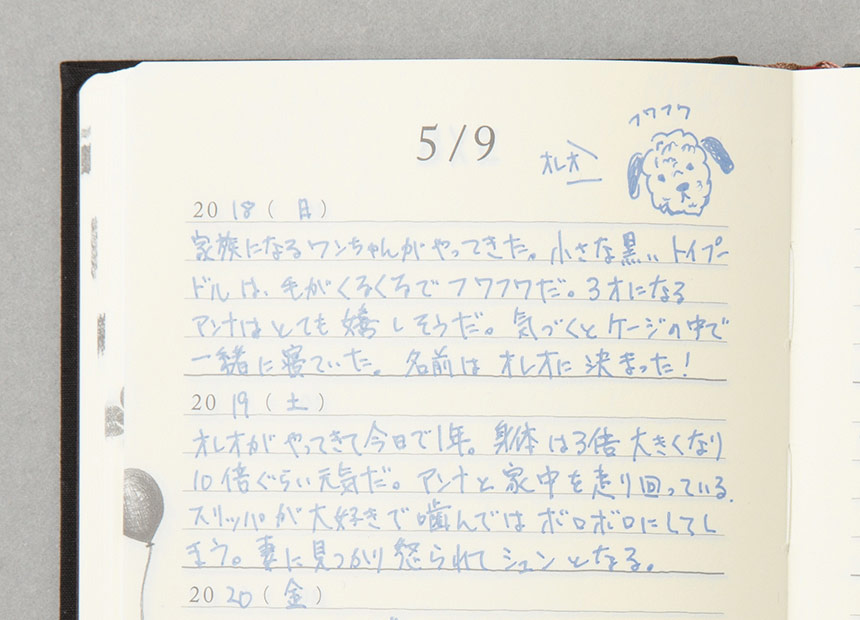 フワフワ
5/9
オレオ
2018(日)
家族になるワンちゃんがやってきた。小さな黒いトイプー
ドルは、毛がくるくるでフワフワだ。3才になる
アンナはとても嬉しそうだ。気づくとケージの中で
一緒に寝ていた。名前はオレオに決まった!
2019(土)
オレオがやってきて今日で1年。身体は3倍大きくなり
10倍ぐらい元気だ。アンナと家中を走り回っている。
スリッパが大好きで噛んではボロボロにしてし
まう。妻に見つかり怒られてシュンとなる。
2020(金)